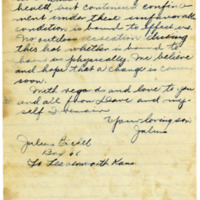 health, but continued confine-
ment under these unfavorable
condition is bound to
No outdoor recreation during
this hot whether is bound to
harm us physically. We believe
and hope that a change is coming
soon.
With regards and love to you
and all from Dave and my-
self I remain
Your loving son
Julius
Julius
Box 66
Ft Leavenworth Kans.